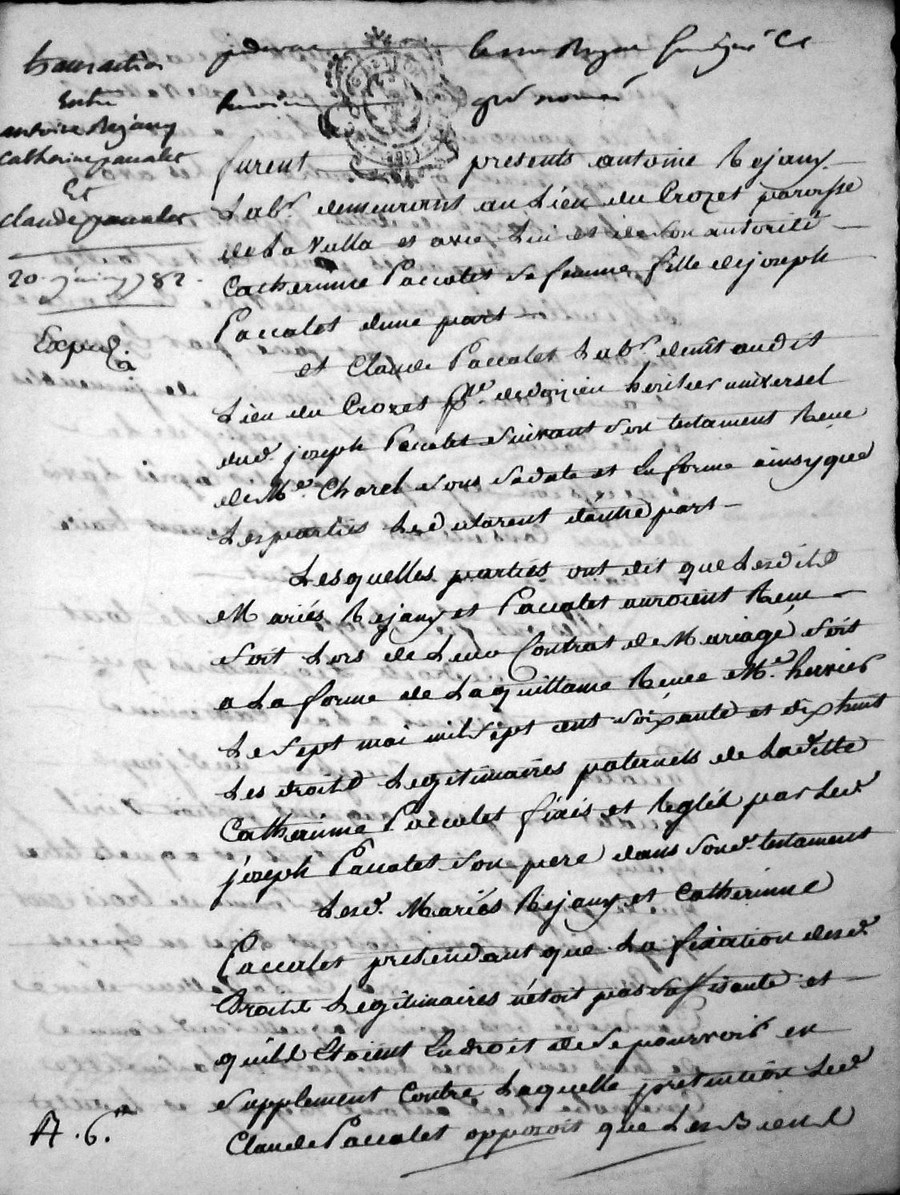 transaction
Entre
antoine Rejany
Catherine paccalet
Et
Claude paccalet
20. juin 1782.
Exped.
furent presents antoine Rejany
Lab.r demeurant au Lieu du Crozet paroisse
de La Valla et avec Lui et de son autorité
Catherinne Paccalet sa femme fille de joseph
Paccalet dune part
et Claude Paccalet Lab.r demt audit
Lieu du Crozet heritier universel
dud. joseph Paccalet suivant son testament Reçu
de Me. Charel sous sa date et La forme ainsy que
Les parties Le declarent dautre part
Lesquelles parties ont dit que Lesdits
Mariés Rejany et Paccalet auroient Reçu
soit Lors de Leur Contrat de Mariage, soit
a La forme de La quittance Reçue Me. hervier
Le sept mai mil sept cent soixante et dix huit
Les droits Legitimaires paternels de Laditte
Catherinne Paccalet fixés et Reglés par Led.
joseph Paccalet son pere dans sond. testament
Lesd. Mariés Rejany et Catherinne
Paccalet pretendant que La fixation desd.
Droits Legitimaires n'etoit pas suffisante et
quils Etoient En droit de se pourvoir en
supplement Contre Laquelle pretention Led.
Claude Paccalet opposoit que Les Biens
A. 6.